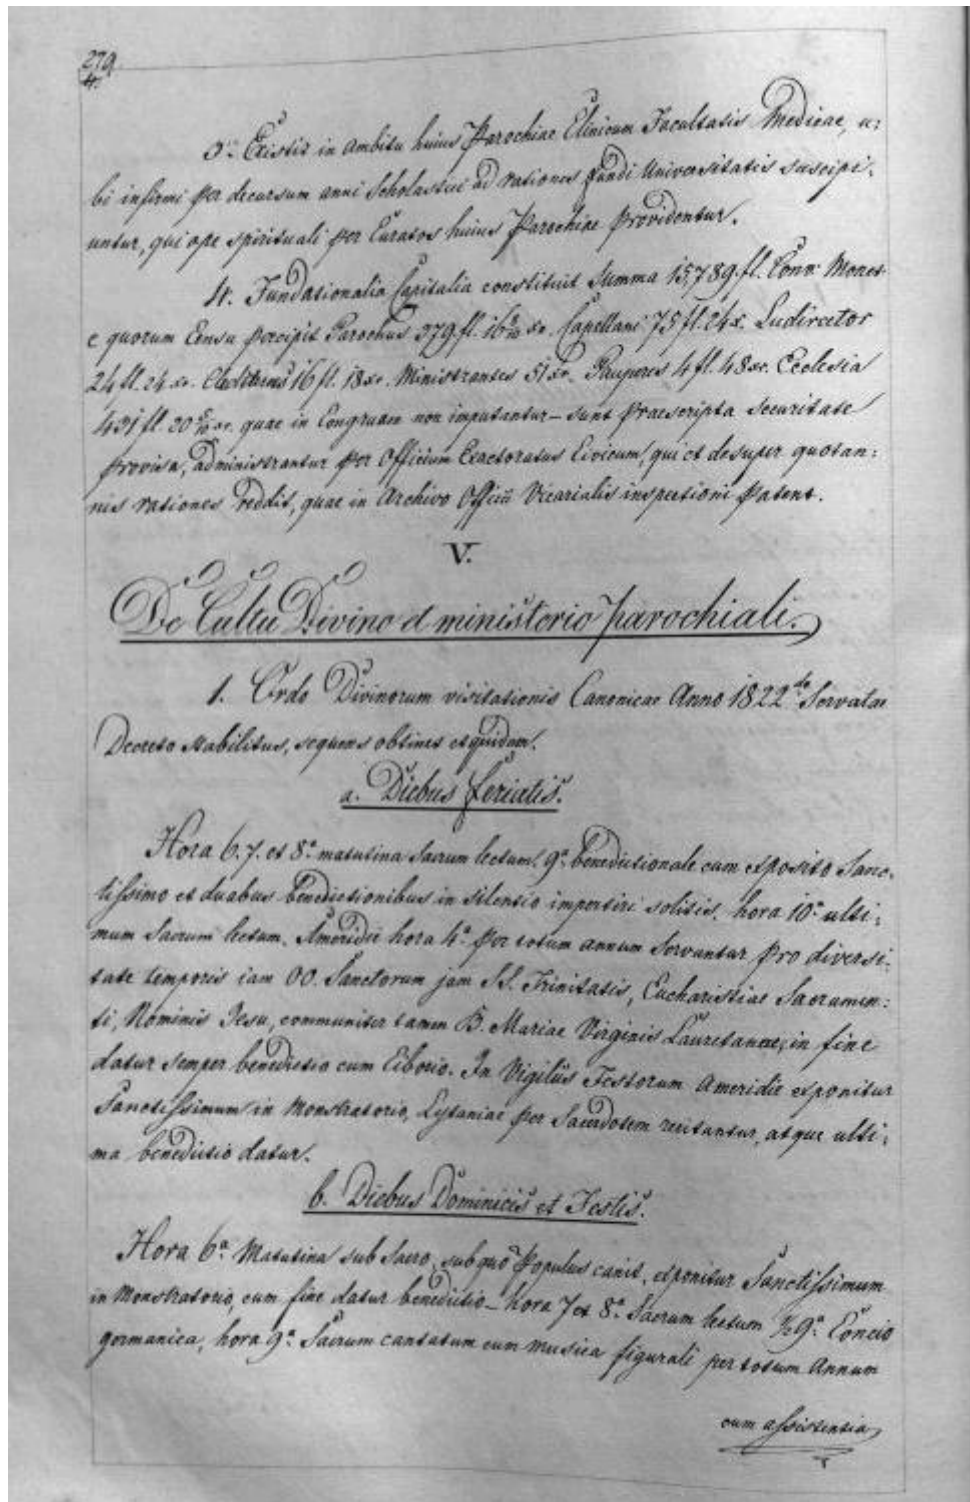 279
4.
3o Existit in ambitu huius Parochiae Clinicum Facultatis Medicae, u:
bi infirmi per decursum anni Scholastici ad rationes fundi Universitatis suscipi:
untur, qui ope spirituali per Curatos huius Parochiae providentur.
4. Fundationalia Capitalia constituit Summa 15,789 fl. Conv: Monet
e quorum Censu percipit Parochus 379 fl. 16 xr. Capellani 75 fl. 24 x. Ludirector
24 fl. 24 xr. 16 fl. 18 xr. Ministrantes 51 xr. Pauperes 4 fl. 48 xr. Ecclesia
431 fl. 20 xr. quae in Congruam non imputantur – sunt praescripta securitate
provisa, administrantur per Officium Exactoratus Civicum, qui et desuper quotan:
nis rationes reddit, quae in Archivo Officii Vicarialis inspectioni patent.
V.
De Cultu Divino et ministerio parochiali.
1. Ordo Divinorum visitationis Canonicae Anno 1822do Servatae
Decreto stabilitus, sequens obtinet et quidem.
a. Diebus ferialis.
Hora 6. 7. et 8a matutina Sacrum lectum. 9a benedictionale cum exposito Sanc:
tissimo et duabus benedictionibus in silentio impertiri solitis, hora 10a ulti:
mum Sacrum lectum. Ameridie hora 4a per totum annum servantur pro diversi:
tate temporis iam OO. Sanctorum jam SS. Trinitatis, Eucharistiae Sacramen:
ti, Nominis Jesu, communiter tamen B. Mariae Virginis Lauretanae, in fine
datur semper benedictio cum Ciborio. In Vigiliis Festorum Ameridie exponitur
Sanctissimum in Monstratorio, Lytaniae per Sacerdotem recitantur, atque ulti:
ma benedictio datur.
b. Diebus Dominicis et Festis.
Hora 6a Matutina sub Sacro, sub quo Populus canit, exponitur Sanctissimum
in Monstratorio, cum fine datur benedictio – hora 7 et 8a Sacrum lectum ½9a Concio
germanica, hora 9a Sacrum cantatum cum musica figurali per totum Annum
cum assistentia